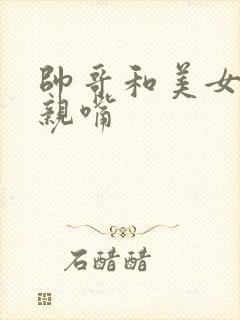 帥哥和美女
親嘴
石醋醋